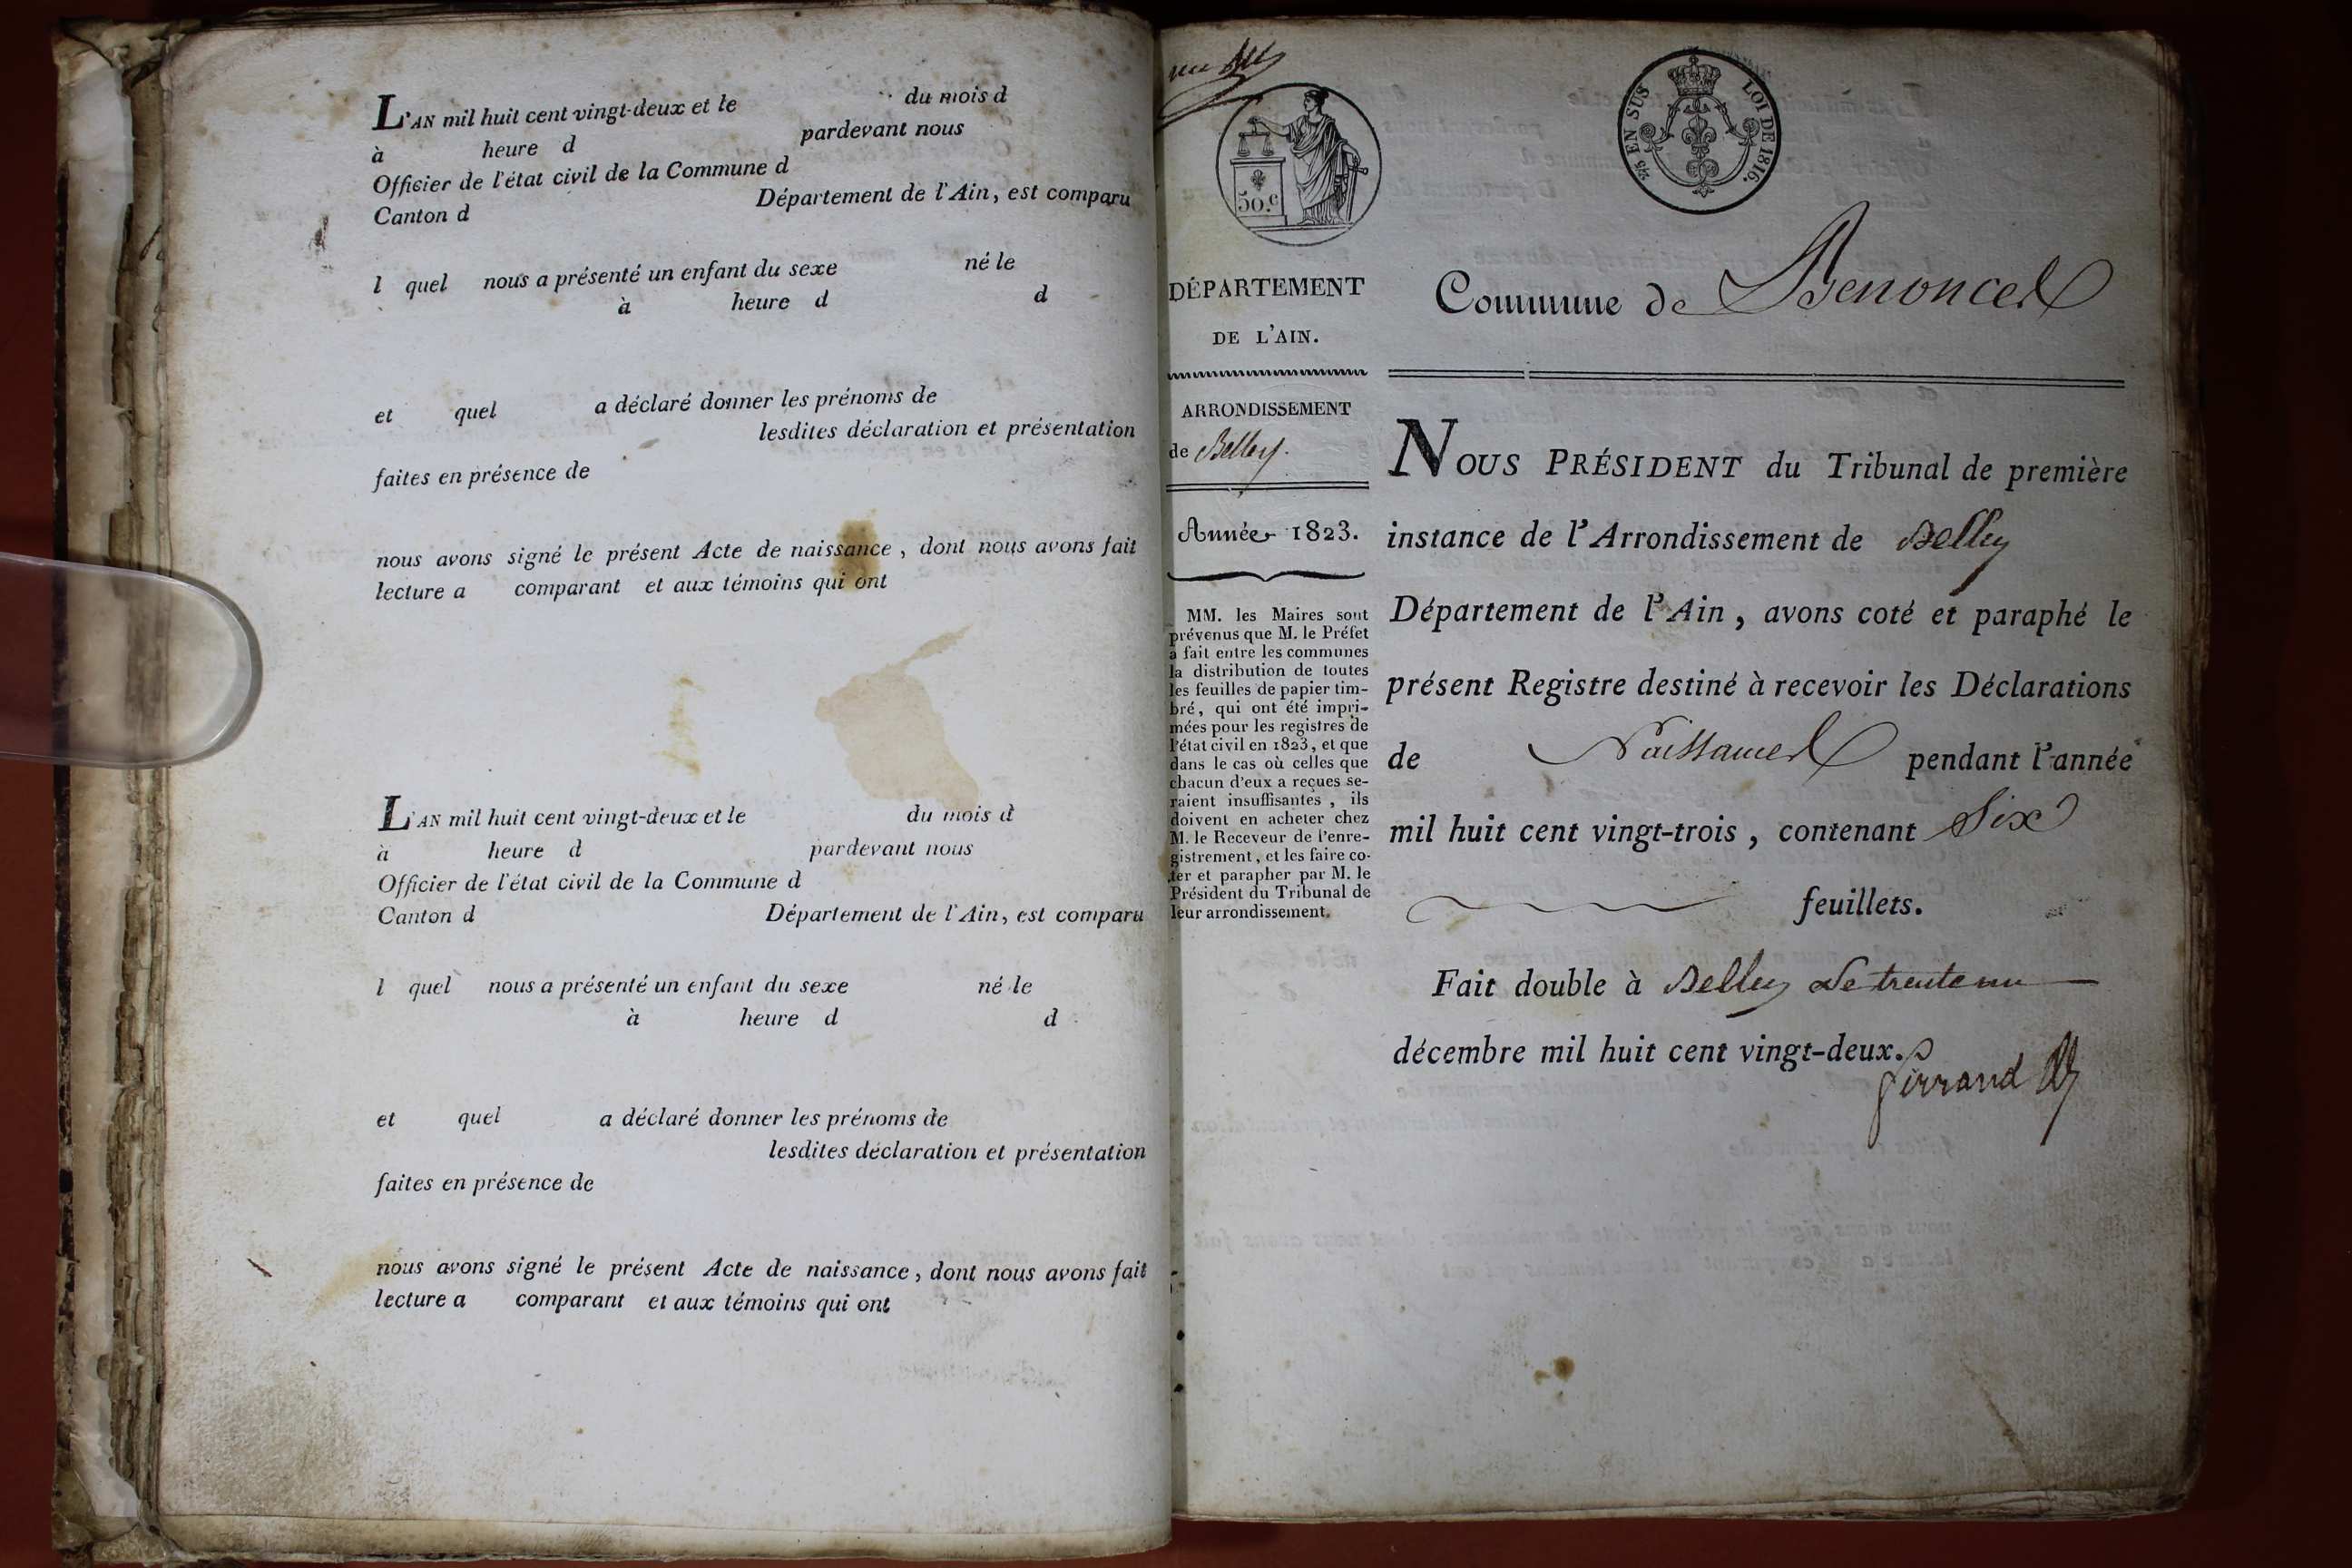 L'AN mil huit cent vingt-deux et le du mois d
à heure d pardevant nous
Officier de l'état civil de la Commune d
Canton d Département de l'Ain, est comparu
l quel nous a présenté un enfant du sexe né le
à heure d d
et quel a déclaré donner les prénoms de
lesdites déclaration et présentation
faites en présence de
nous avons signé le présent Acte de naissance, dont nous avons fait
lecture a comparant et aux témoins qui ont
L'AN mil huit cent vingt-deux et le du mois d
à heure d pardevant nous
Officier de l'état civil de la Commune d
Canton d Département de l'Ain, est comparu
l quel nous a présenté un enfant du sexe né le
à heure d d
et quel a déclaré donner les prénoms de
lesdites déclaration et présentation
faites en présence de
nous avons signé le présent Acte de naissance, dont nous avons fait
lecture a comparant et aux témoins qui ont
50.c
EN SUS LOI DE 1816.
DÉPARTEMENT
DE L'AIN.
ARRONDISSEMENT
de Belley.
Année 1823.
MM. les Maires sont
prévenus que M. le Préfet
a fait entre les communes
la distribution de toutes
les feuilles de papier tim-
bré, qui ont été impri-
mées pour les registres de
l'état civil en 1823, et que
dans le cas où celles que
chacun d'eux a reçues se-
raient insuffisantes, ils
doivent en acheter chez
M. le Receveur de l'enre-
gistrement, et les faire co-
ter et parapher par M. le
Président du Tribunal de
leur arrondissement.
Commune de Benonces
NOUS PRÉSIDENT du Tribunal de première
instance de l'Arrondissement de Belley
Département de l'Ain, avons coté et paraphé le
présent Registre destiné à recevoir les Déclarations
de Naissances pendant l'année
mil huit cent vingt-trois, contenant Six
feuillets.
Fait double à Belley le trente un
décembre mil huit cent vingt-deux.